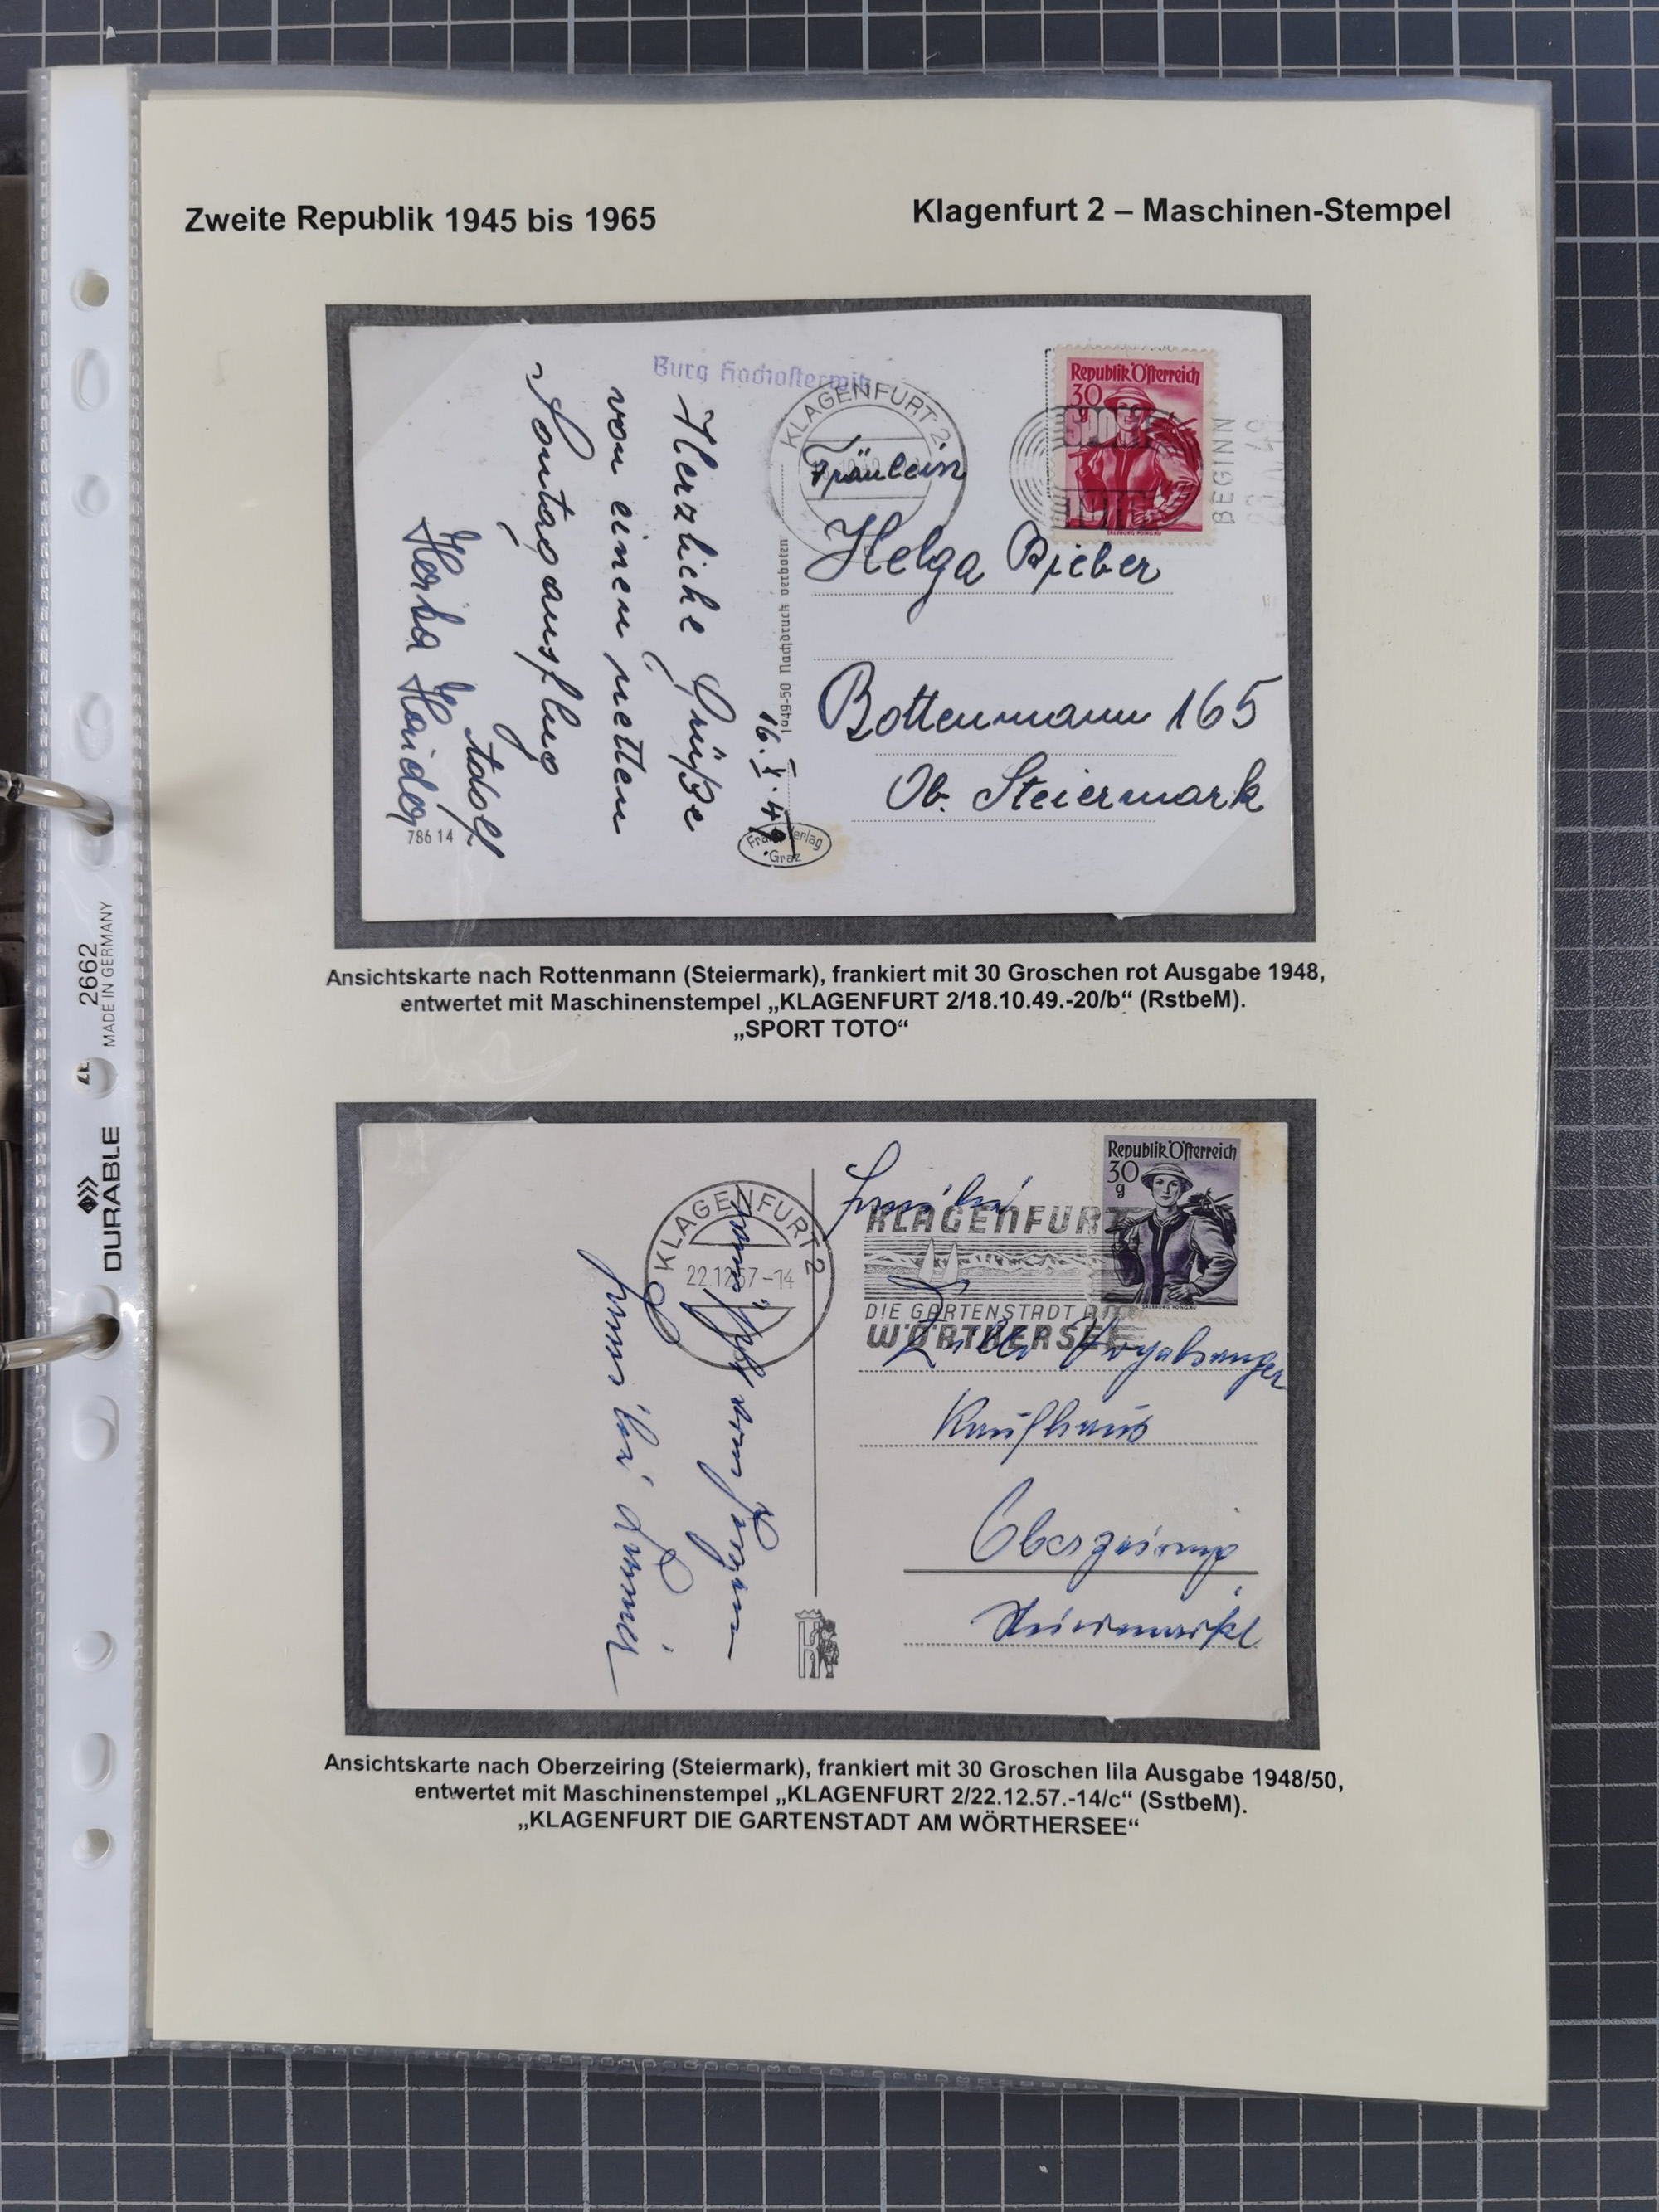 Zweite Republik 1945 bis 1965
Klagenfurt 2 – Maschinen-Stempel
Burg Hochosterwitz
KLAGENFURT 2
Republik Österreich
30
g
SALZBURG PONGAU
SPORT
TOTO
BEGINN
Herzliche Grüße
von einen netten
Sontag ausflug
Adolf
Herta Haider
78614
16.X.49
1949-50 Nachdruck verboten
Frank Verlag
Graz
Fräulein
Helga Bieber
Rottenmann 165
Ob. Steiermark
Ansichtskarte nach Rottenmann (Steiermark), frankiert mit 30 Groschen rot Ausgabe 1948,
entwertet mit Maschinenstempel „KLAGENFURT 2/18.10.49.-20/b“ (RstbeM).
„SPORT TOTO“
KLAGENFURT 2
22.12.57-14
KLAGENFURT
DIE GARTENSTADT AM
WÖRTHERSEE
Republik Österreich
30
g
SALZBURG PONGAU
Kaufhaus
Oberzeiring
Steiermark
Ansichtskarte nach Oberzeiring (Steiermark), frankiert mit 30 Groschen lila Ausgabe 1948/50,
entwertet mit Maschinenstempel „KLAGENFURT 2/22.12.57.-14/c“ (SstbeM).
„KLAGENFURT DIE GARTENSTADT AM WÖRTHERSEE“
DURABLE
2662
MADE IN GERMANY